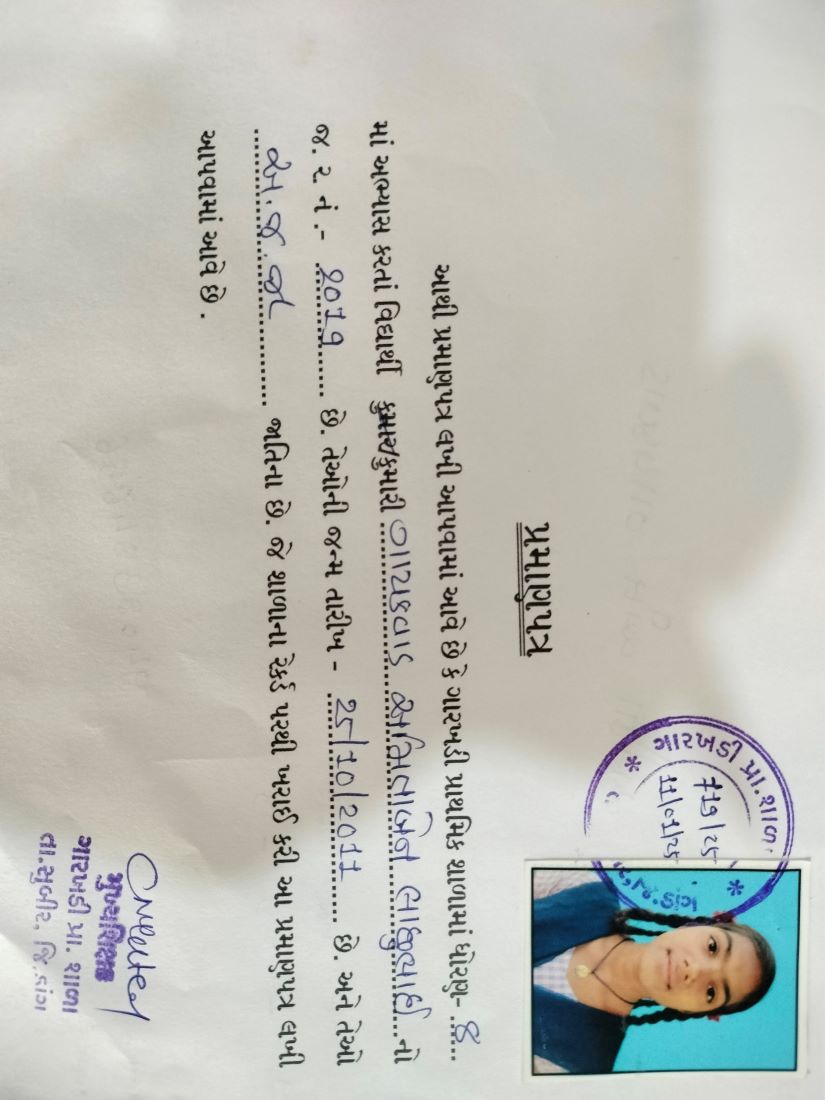 પ્રમાણપત્ર
આથી પ્રમાણપત્ર લખી આપવામાં આવે છે કે ગારખડી પ્રાથમિક શાળામાં ધોરણ- ૪
માં અભ્યાસ કરતાં વિદ્યાર્થી કુમાર/કુમારી ગાયકવાડ ... નો
જ. ર. નં .- 2019 છે. તેઓની જન્મ તારીખ - 25/10/2011 છે. અને તેઓ
અ.જ.જા જાતિના છે. જે શાળાના રેકર્ડ પરથી ખરાઈ કરી આ પ્રમાણપત્ર લખી
આપવામાં આવે છે .
ગારખડી પ્રા.શાળા
મુખ્યશિક્ષક
ગારખડી પ્રા. શાળા
તા.સુબીર. જિ.ડાંગ